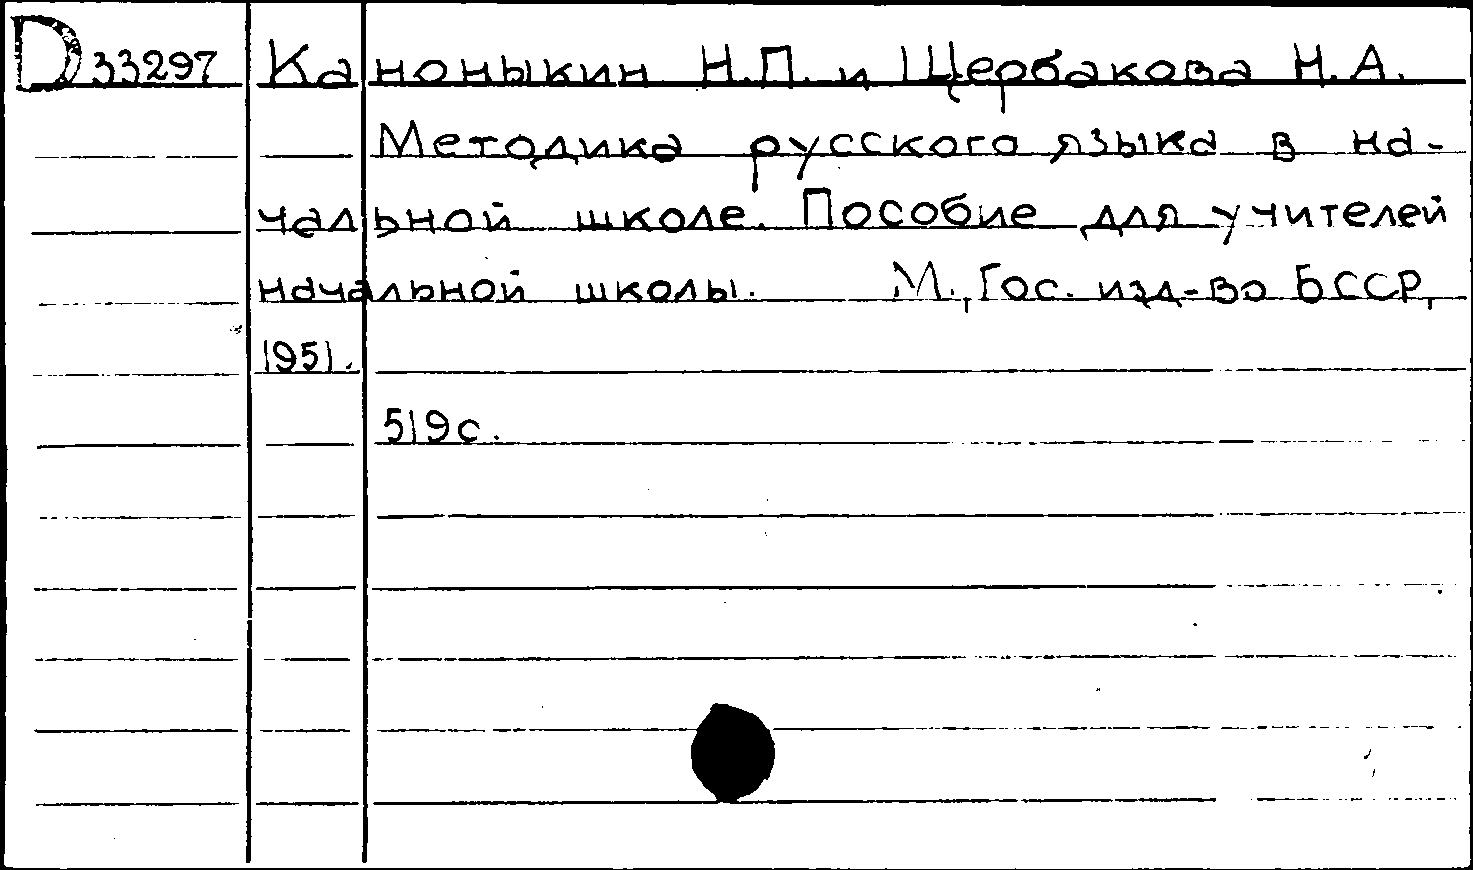 D 33297 Каноныкин Н.П. и Щербакова Н.А.
Методика русского языка в на-
чальной школе. Пособие для учителей
начальной школы. М., Гос. изд-во БССР,
1951.
519 с.